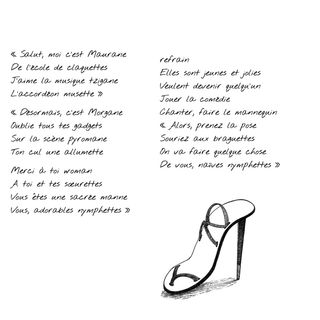 « Salut, moi c'est Maurane
De l'école de claquettes
J'aime la musique tzigane
L'accordéon musette »
« Désormais, c'est Morgane
Oublie tous tes gadgets
Sur la scène pyromane
Ton cul une allumette »
Merci à toi woman
A toi et tes sœurettes
Vous êtes une sacrée manne
Vous, adorables nymphettes »
refrain
Elles sont jeunes et jolies
Veulent devenir quelqu'un
Jouer la comédie
Chanter, faire le mannequin
« Alors, prenez la pose
Souriez aux braguettes
On va faire quelque chose
De vous, naïves nymphettes »